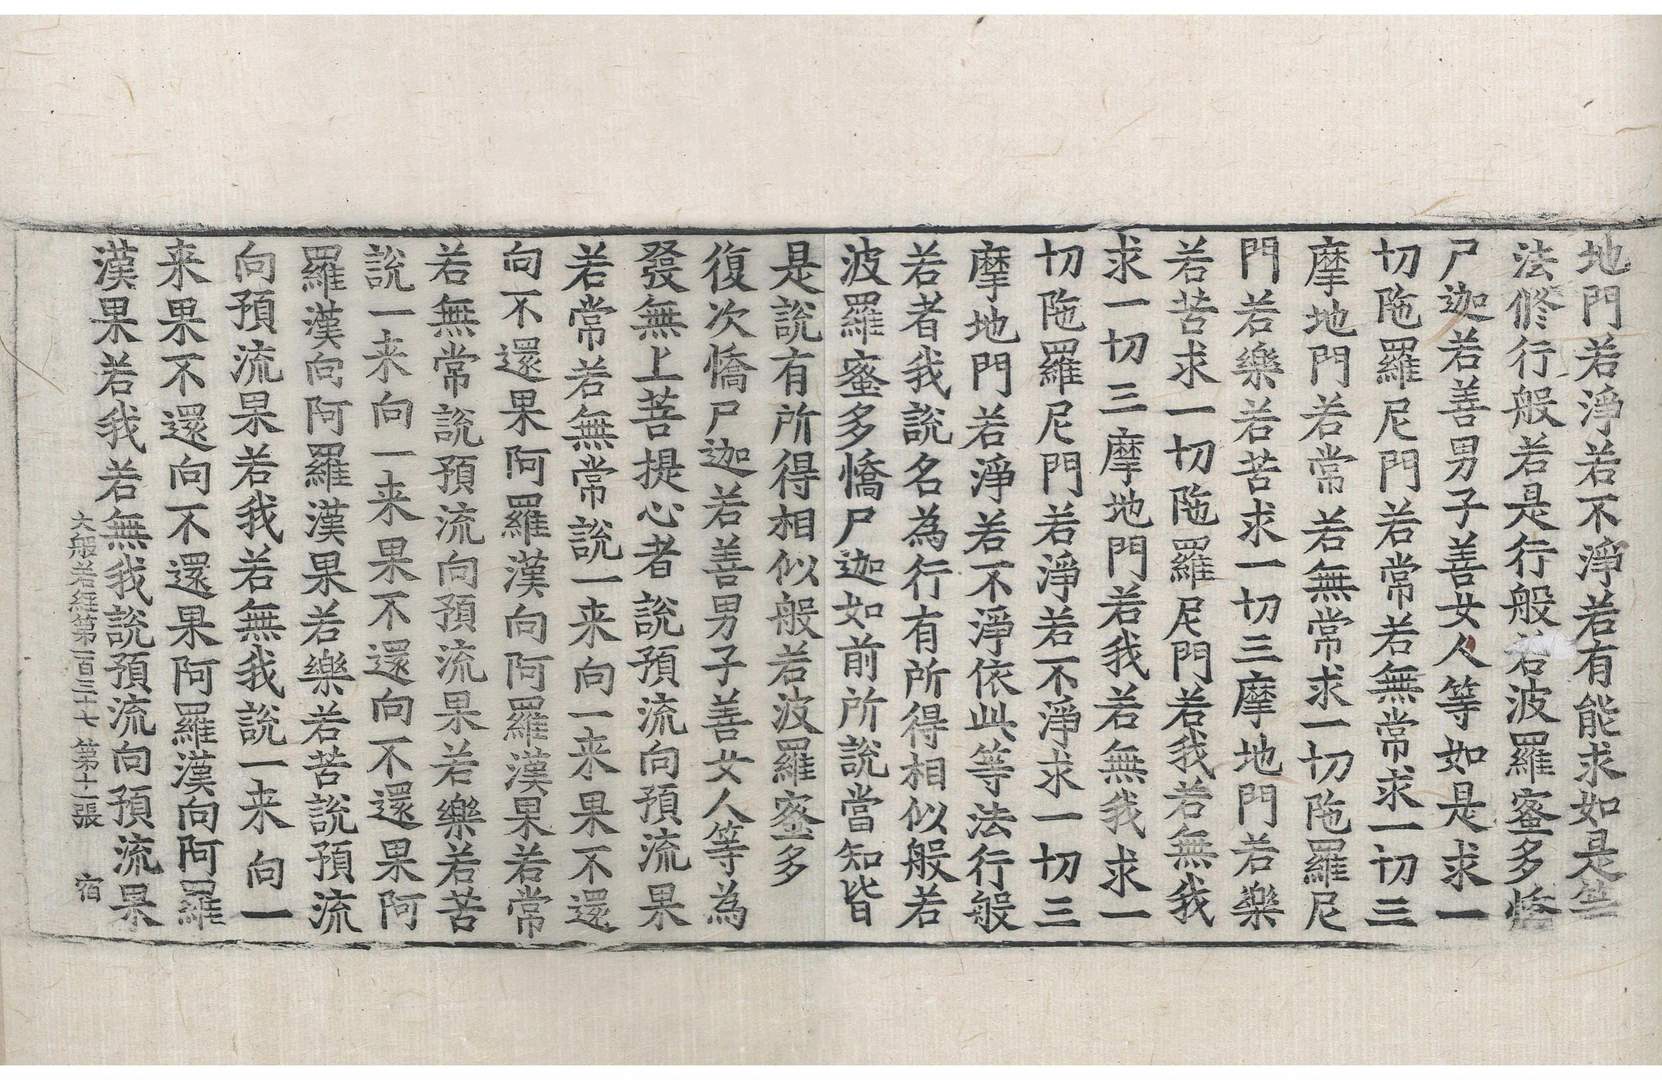 地門若淨若不淨若有能求如是等
法修行般若是行般若波羅蜜多憍
尸迦若善男子善女人等如是求一
切陁羅尼門若常若無常求一切三
摩地門若常若無常求一切陁羅尼
門若樂若苦求一切三摩地門若樂
若苦求一切陁羅尼門若我若無我
求一切三摩地門若我若無我求一
切陁羅尼門若淨若不淨求一切三
摩地門若淨若不淨依此等法行般
若者我說名為行有所得相似般若
波羅蜜多憍尸迦如前所說當知皆
是說有所得相似般若波羅蜜多
復次憍尸迦若善男子善女人等為
發無上菩提心者說預流向預流果
若常若無常說一来向一来果不還
向不還果阿羅漢向阿羅漢果若常
若無常說預流向預流果若樂若苦
說一来向一来果不還向不還果阿
羅漢向阿羅漢果若樂若苦說預流
向預流果若我若無我說一来向一
来果不還向不還果阿羅漢向阿羅
漢果若我若無我說預流向預流果
大般若経第一百三十七 第十一張 宿